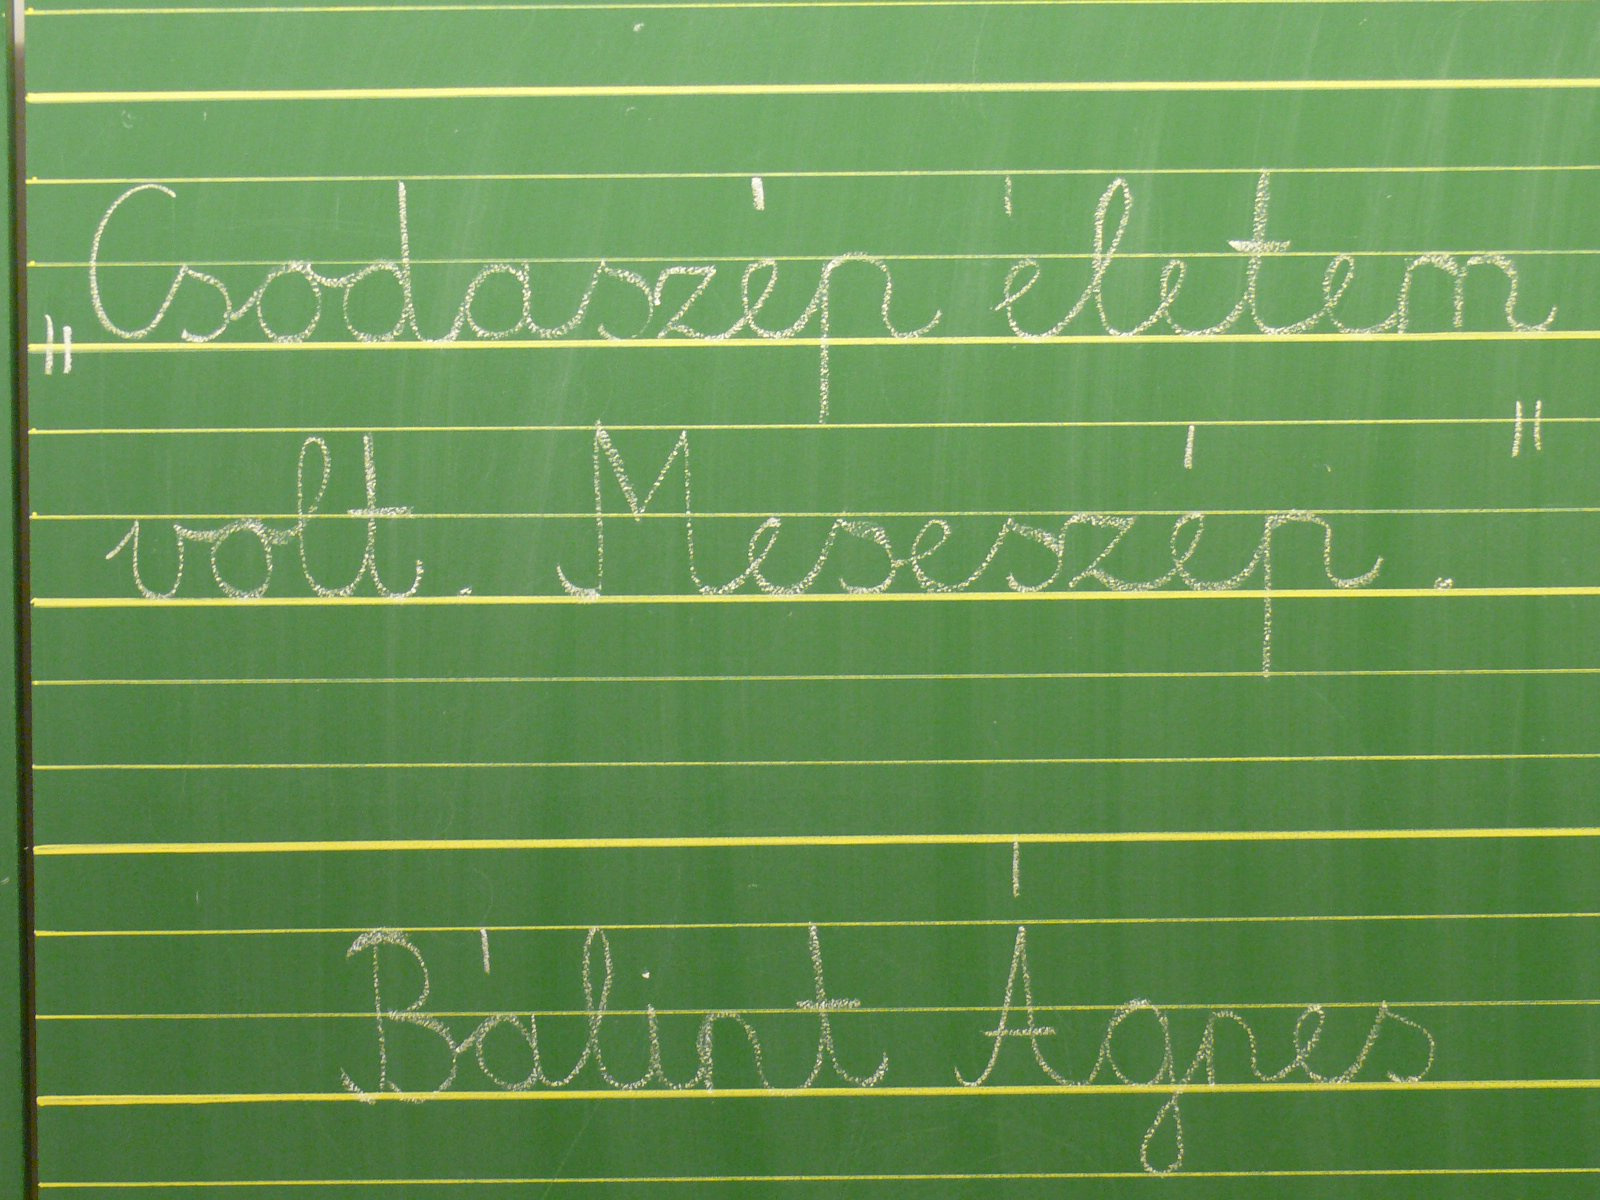 „Csodaszép életem
volt. Meseszép.”
Bálint Ágnes